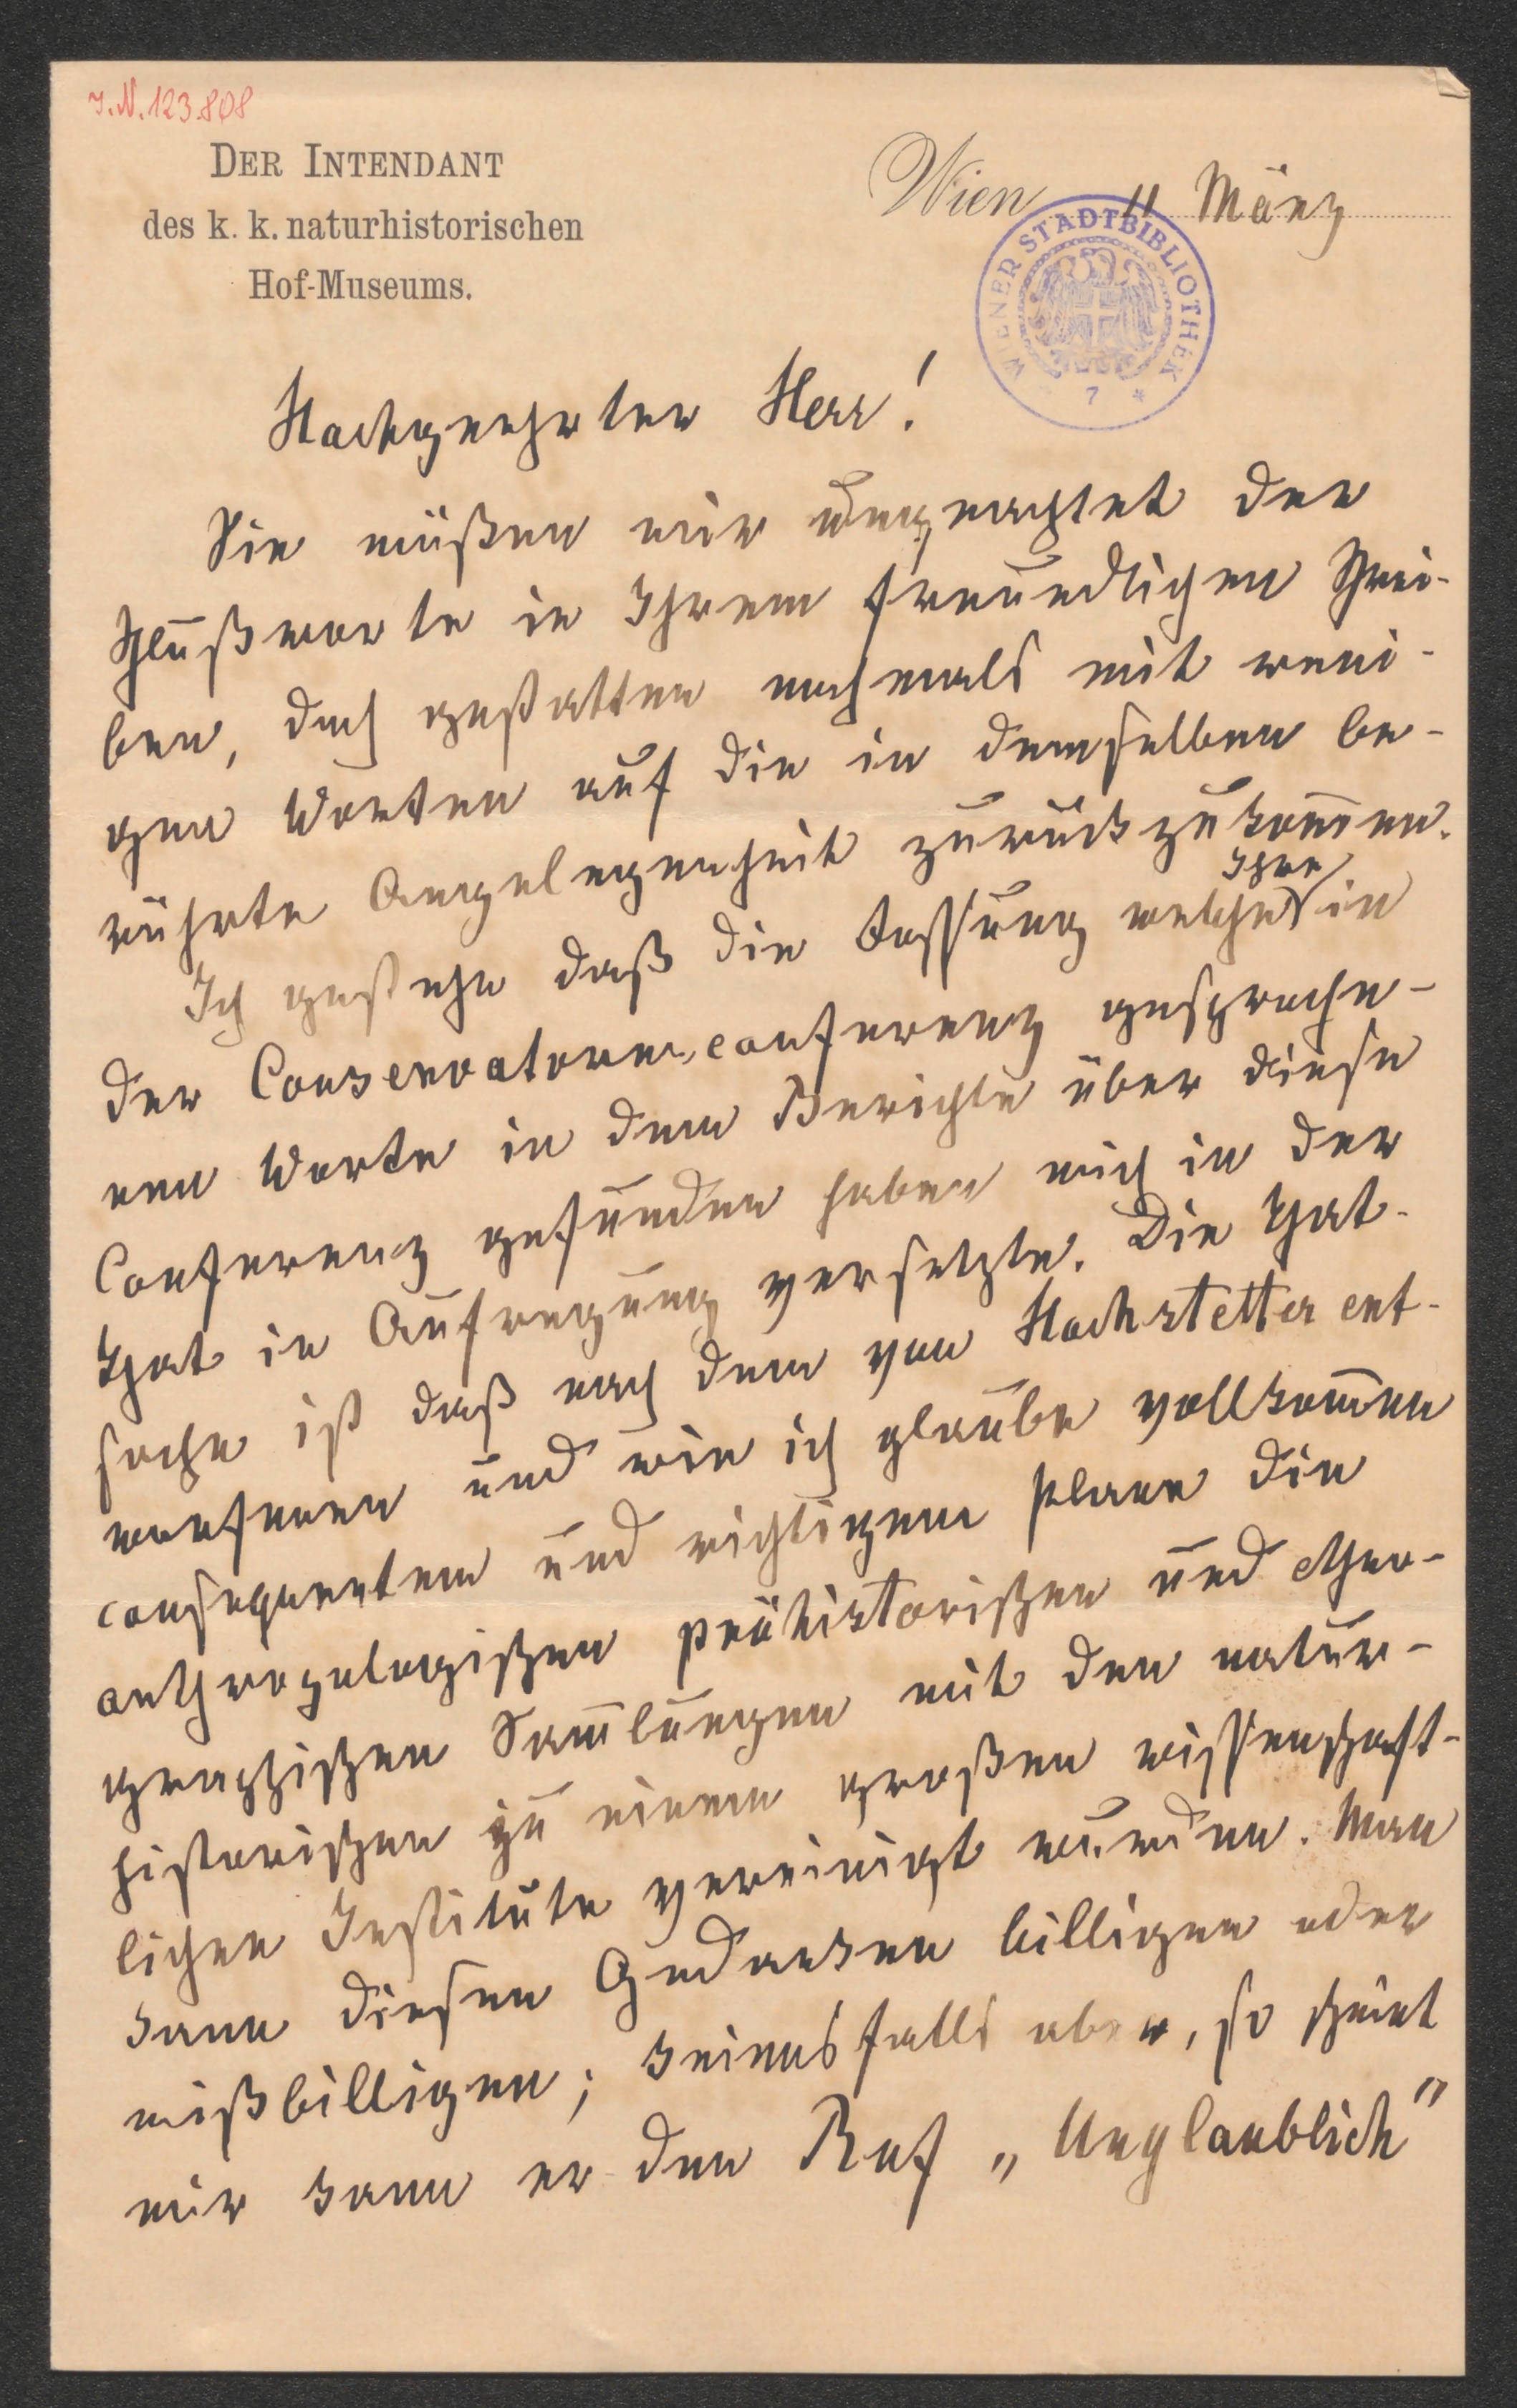 I.N. 123.808
DER INTENDANT
des k. k. naturhistorischen
Hof-Museums.
Wien 11 März
WIENER STADTBIBLIOTHEK
7 *
Hochgeehrter Herr!
Sie müßen mir ungeachtet der
Schlußworte in Ihrem freundlichen Schrei-
ben, doch gestatten nochmals mit weni-
gen Worten auf die in demselben be-
rührte Angelegenheit zurückzukom̅en.
Ich gestehe daß die Fassung welche Ihre in
der Conservatoren conferenz gesproche-
nen Worte in dem Berichte über diese
Conferenz gefunden haben mich in der
That in Aufregung versetzte. Die That-
sache ist daß nach dem von Hochstetter ent-
worfenen und wie ich glaube vollkom̅en
consequenten und richtigem Plane die
anthropologischen prähistorischen und ethno-
graphischen Sam̅lungen mit den natur-
historischen zu einem großen wissenschaft-
lichen Institute vereinigt wurden. Man
kann diesen Gedanken billigen oder
mißbilligen; keinesfalls aber, so scheint
mir kann er den Ruf „Unglaublich"